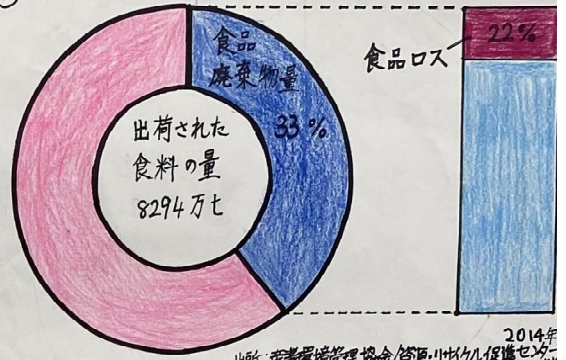 食品
廃棄物量
33%
出荷された
食料の量
8294万t
22%
食品ロス
2014年
出所:産業環境管理協会/資源・リサイクル促進センター